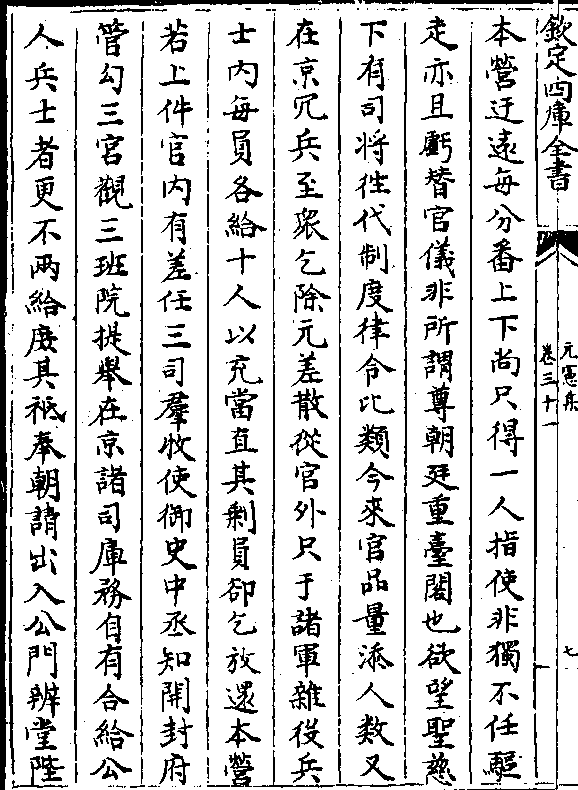 欽定四庫全書
元憲集
卷三十一
七
本營迂遠每分番上下尚只得一人指使非獨不任驅
走亦且虧替官儀非所謂尊朝廷重臺閣也欲望聖慈
下有司將徃代制度律令比類今來官品量添人数又
在京冗兵至衆乞除元差散從官外只于諸軍雜役兵
士内每員各給十人以充當直其剩員卻乞放還本營
若上件官内有差任三司羣牧使御史中丞知開封府
管勾三宮觀三班院提舉在京諸司庫務自有合給公
人兵士者更不兩給庶其祗奉朝請出入公門辨堂陛